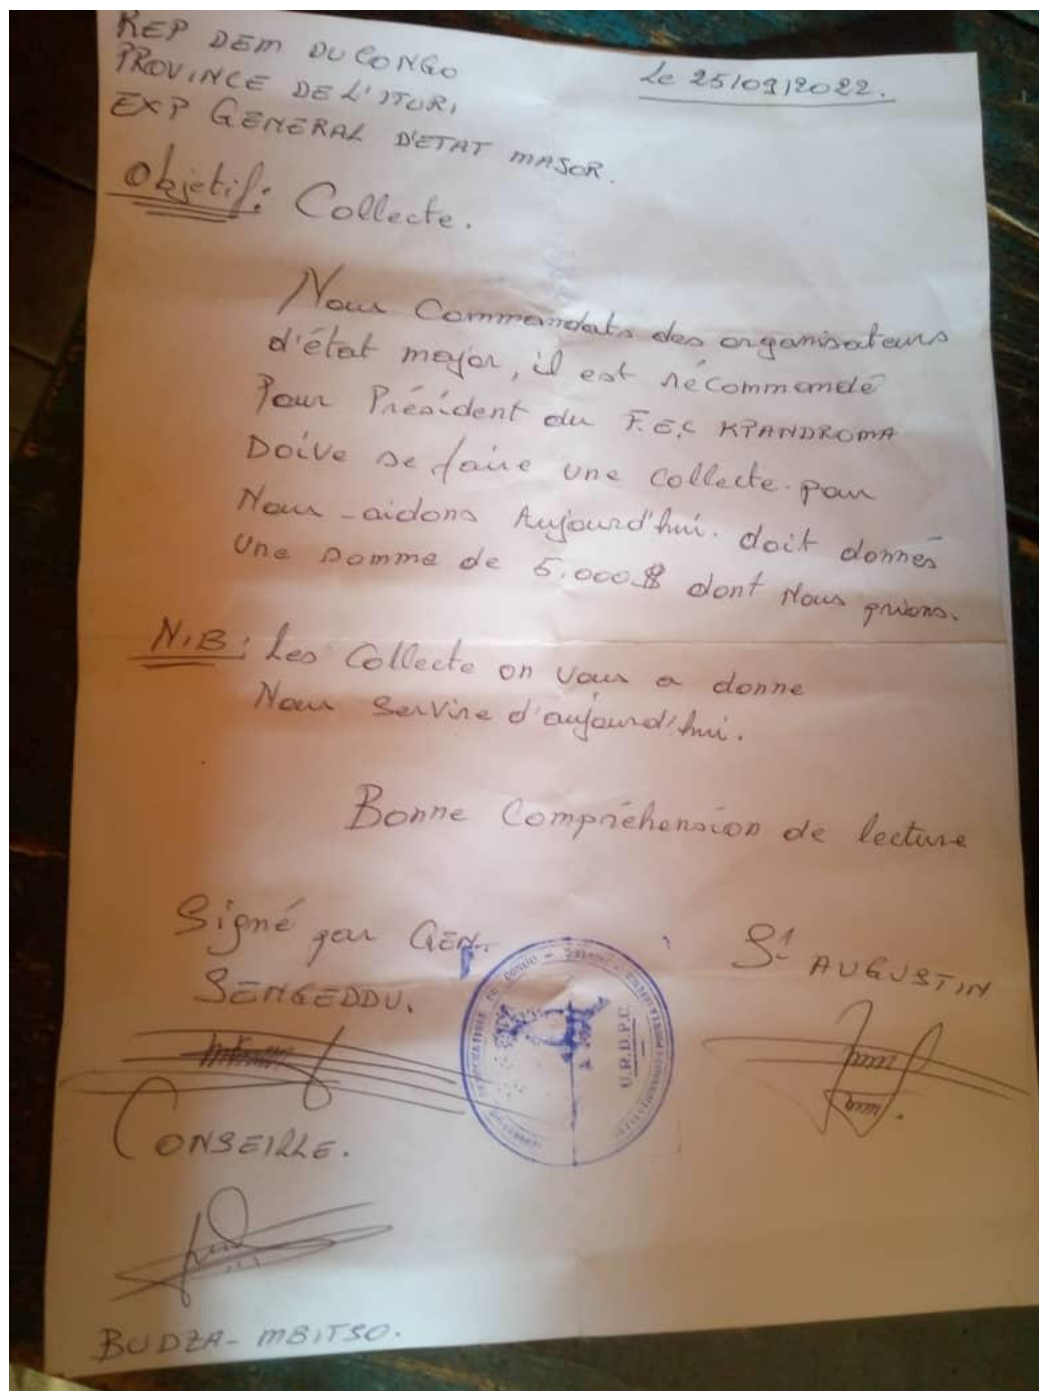 REP DEM DU CONGO
Le 25/09/2022.
PROVINCE DE L'ITURI
EXP GENERAL D'ETAT MAJOR.
Objetif: Collecte.
Nous Commandats des organisateurs
d'état major, il est récommandé
Pour Président du F.E.C KPANDROMA
Doive se faire une collecte pour
Nous-aidons Aujourd'hui. doit donnés
Une somme de 5.000 $ dont Nous prions.
N.B: Les Collecte on vous a donne
Nous Servire d'aujourd'hui.
Bonne Compréhension de lecture
Signé par GEN.
SENGEDDU.
St AUGUSTIN
U.R.D.P.C.
CONSEILLE.
BUDZA-MBITSO.